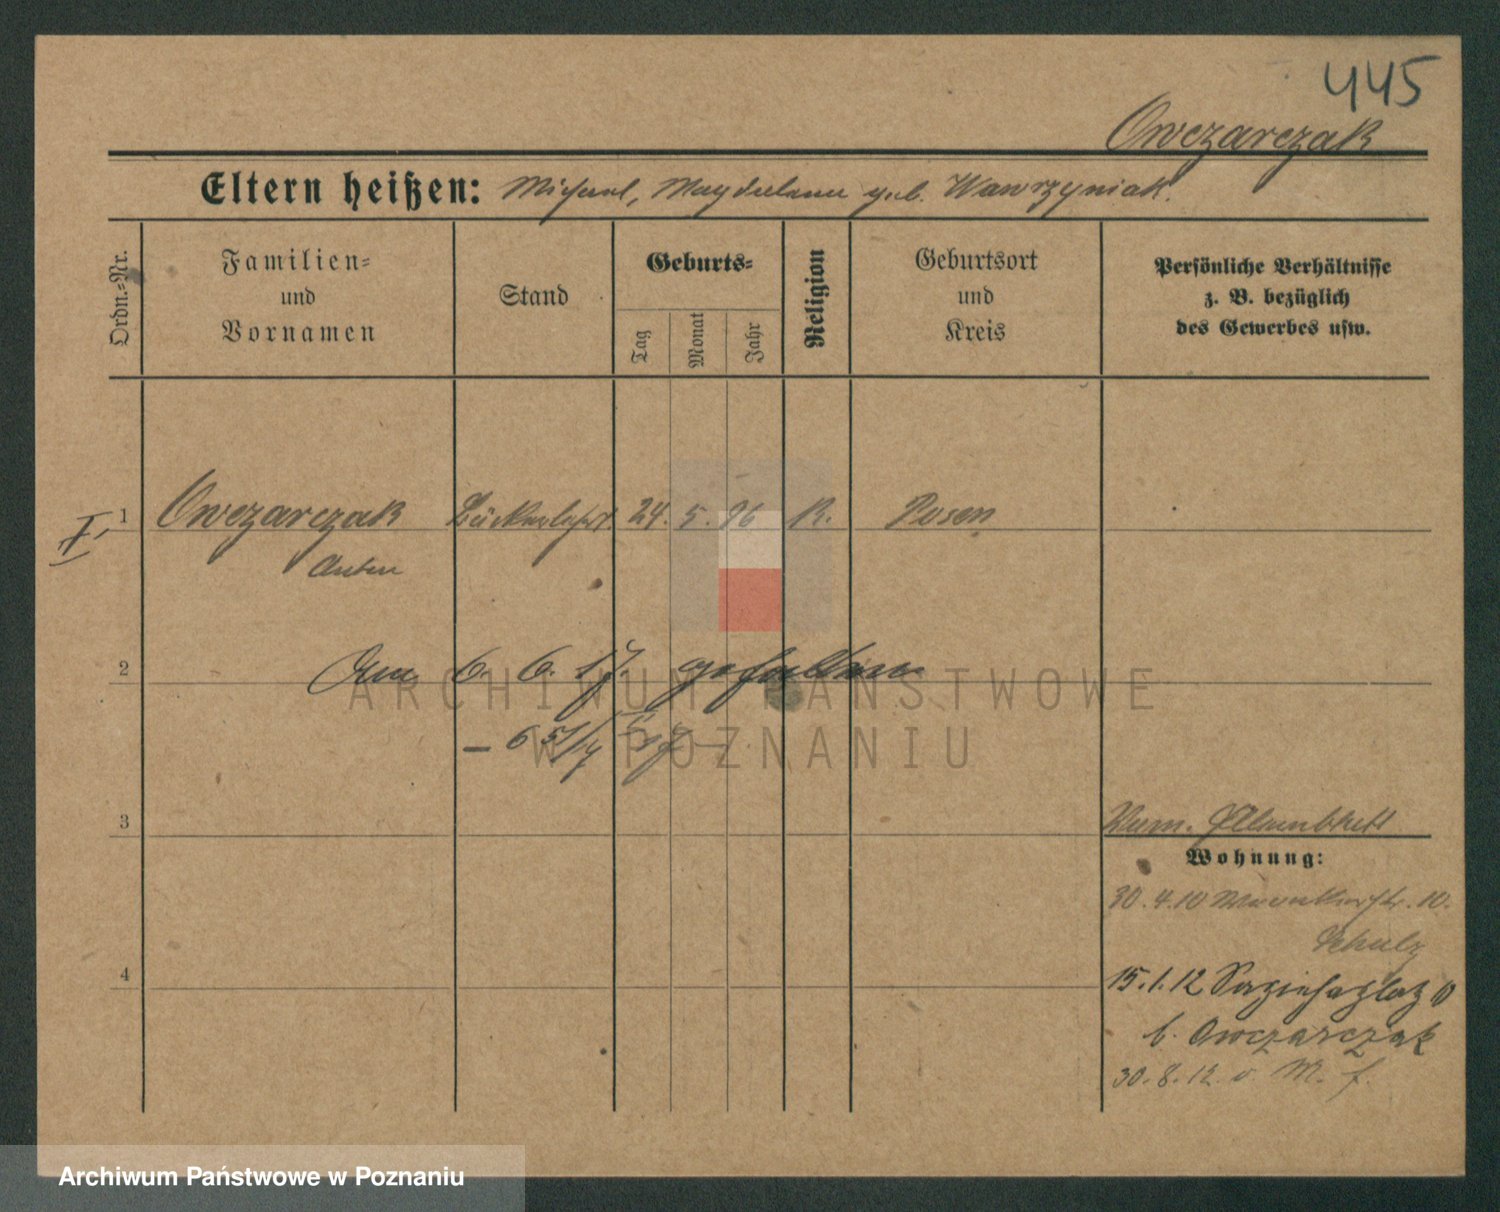 445
Owczarczak
Eltern heißen: Michael, Magdalena geb. Wawrzyniak.
Ordn.=Nr.
Familien=
und
Vornamen
Stand
Geburts=
Tag
Monat
Jahr
Religion
Geburtsort
und
Kreis
Persönliche Verhältnisse
z. B. bezüglich
des Gewerbes usw.
I.
1 Owczarczak Bäckerlehrl. 24. 5. 96 R. Posen
Anton
2 Am 6. 6. 17. gefallen
ARCHIWUM PAŃSTWOWE
W POZNANIU
3
Wohnung:
30.4.10 10.
Schulz
4
15.1.12 Sapiehaplatz 10
b. Owczarczak
30.8.12 v. M. f.
Archiwum Państwowe w Poznaniu